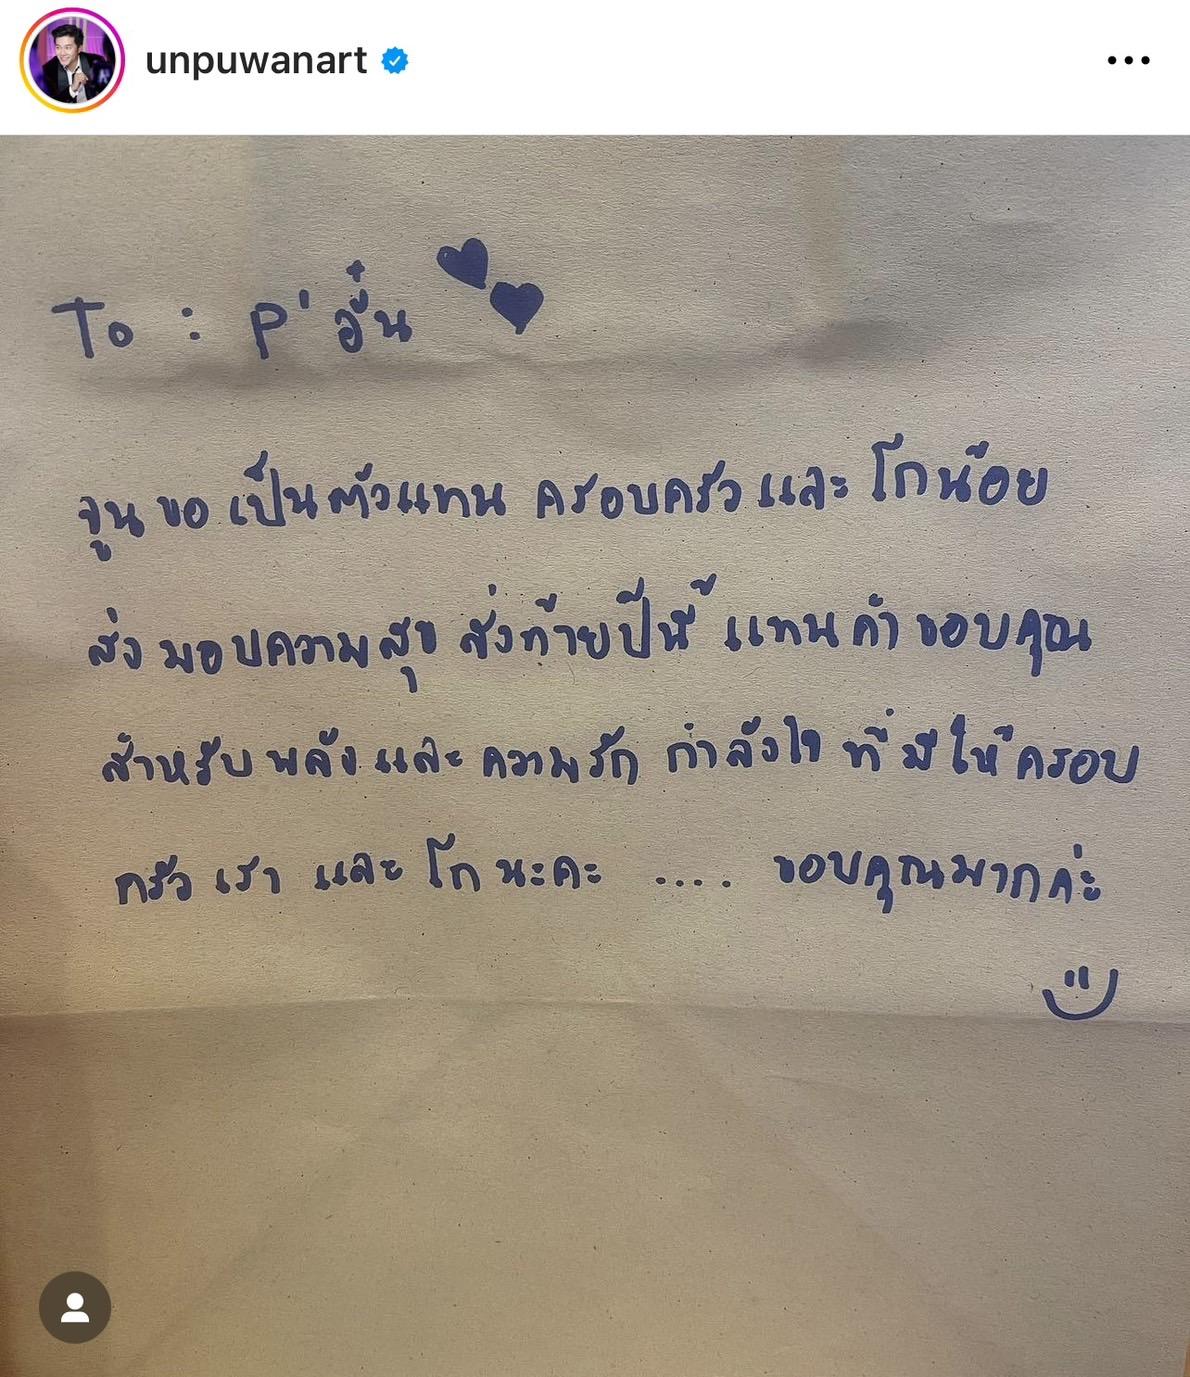 unpuwanart
To : P' อุ๋น
จูน ขอ เป็นตัวแทน ครอบครัว และ โกน้อย
ส่ง มอบความสุข ส่งท้ายปีนี้ แทน คำ ขอบคุณ
สำหรับ พลัง และ ความรัก กำลังใจ ที่ มีให้ ครอบ
ครัว เรา และ โก นะคะ .... ขอบคุณมากค่ะ